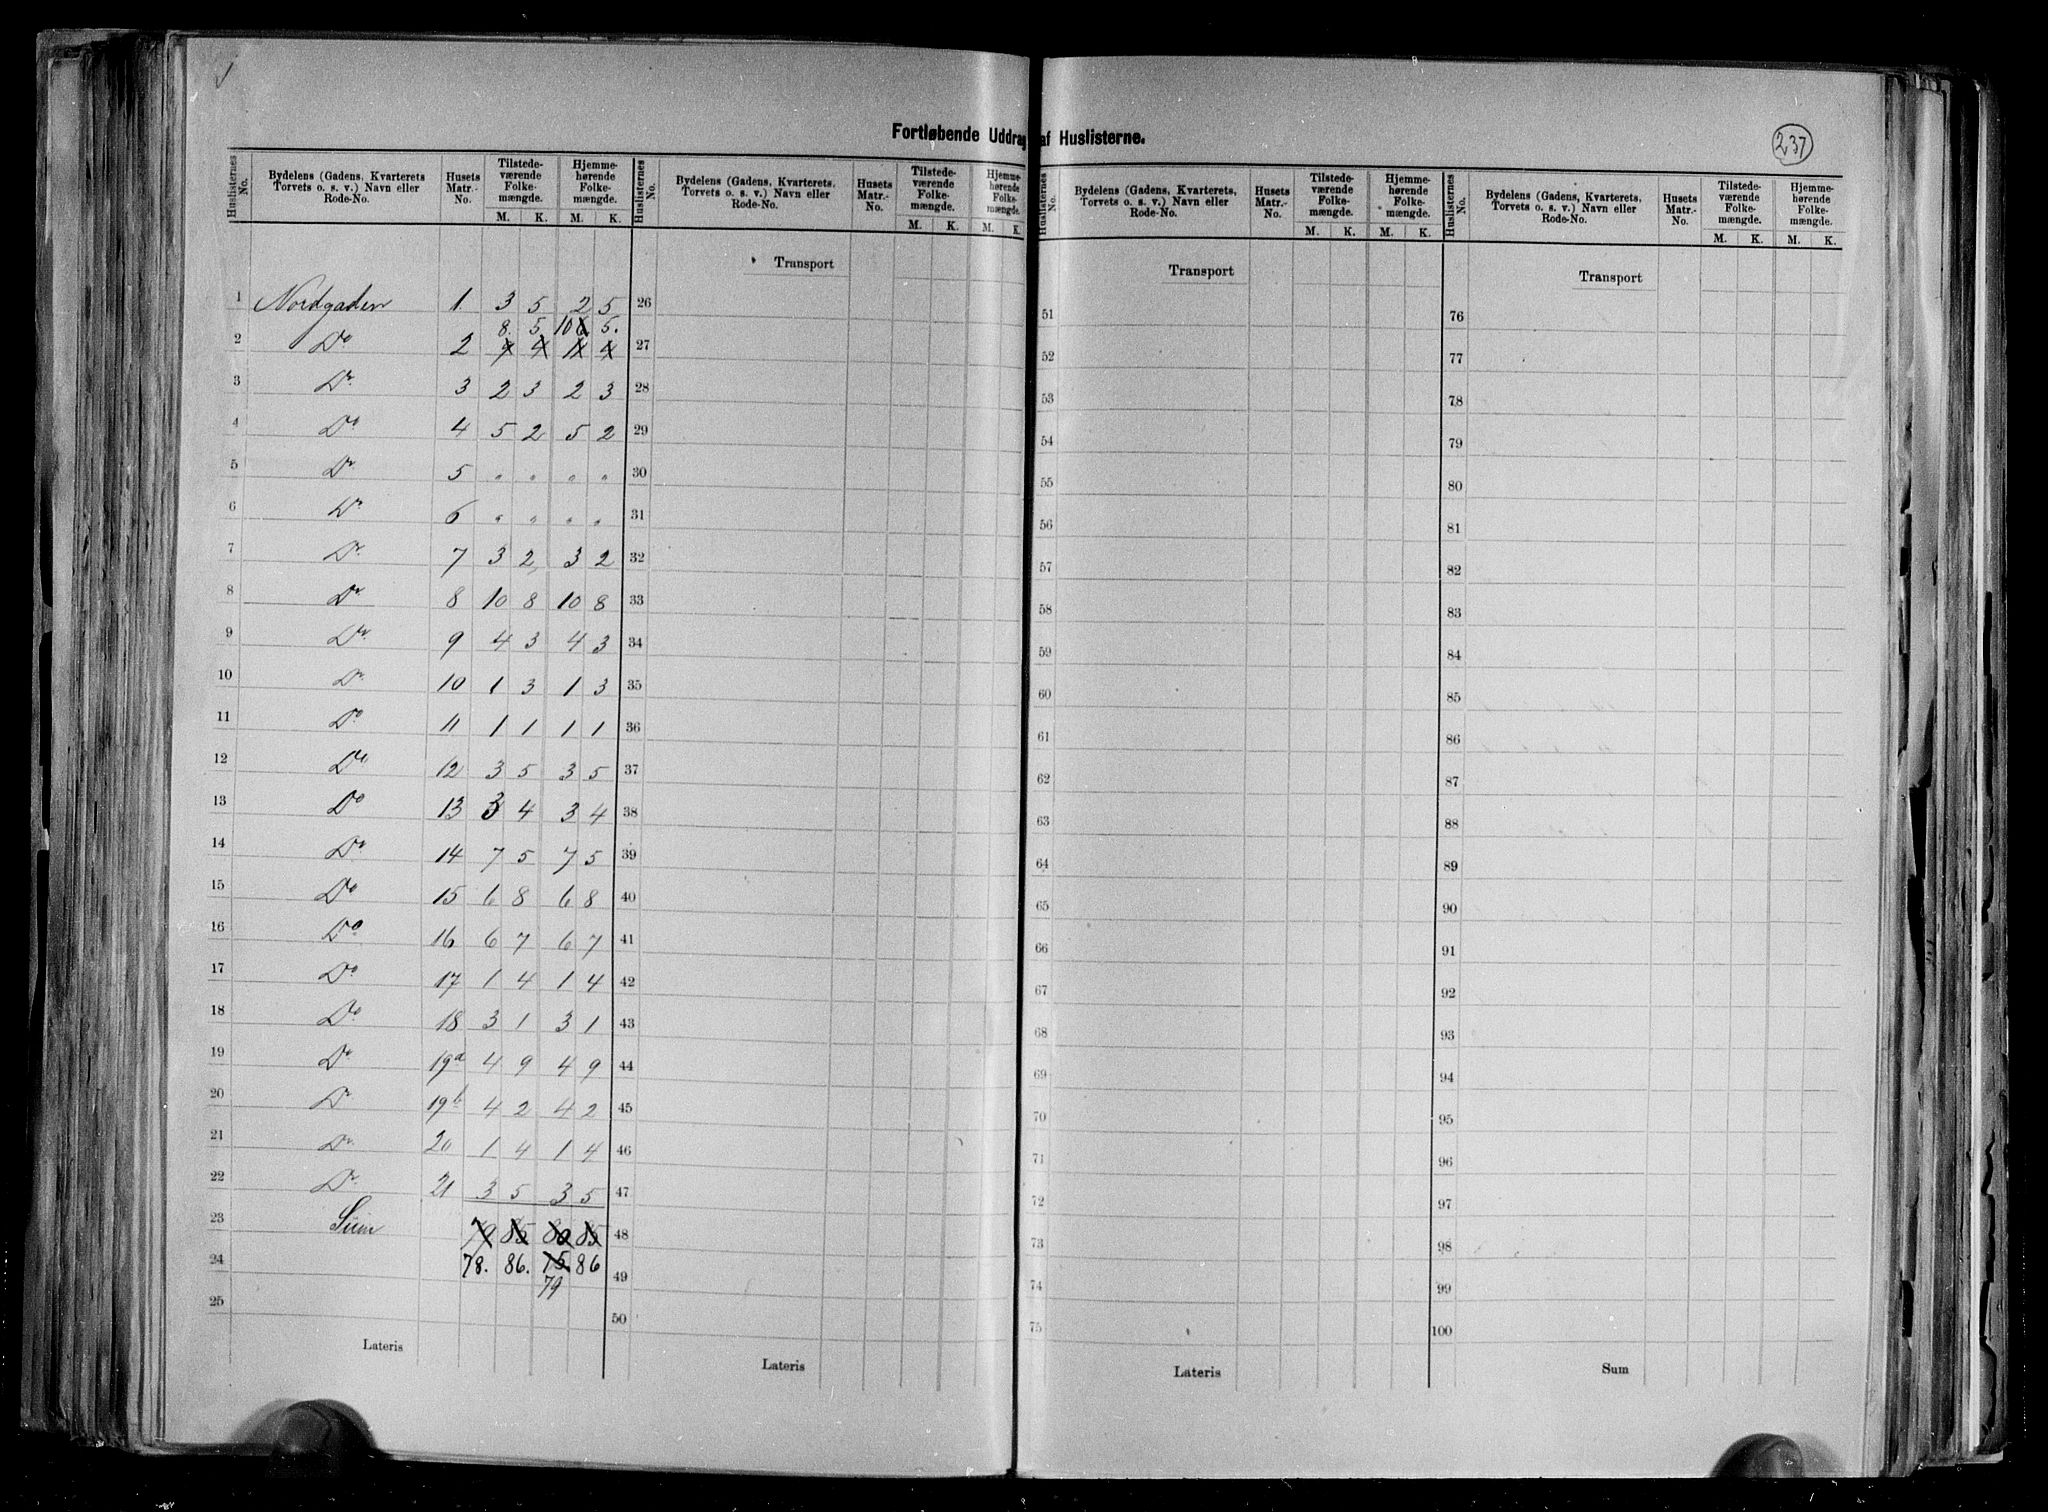 Fortløbende Uddrag af Huslisterne.
237
Huslisternes No. | Bydelens (Gadens, Kvarterets, Torvets o. s. v.) Navn eller Rode-No. | Husets Matr.-No. | Tilstedeværende Folkemængde. M. K. | Hjemmehørende Folkemængde. M. K.
1 Nordgaden 1 3 5 2 5
8. 5. 10 5.
2 Do 2 7 4 11 4
3 Do 3 2 3 2 3
4 Do 4 5 2 5 2
5 Do 5 " " " "
6 Do 6 " " " "
7 Do 7 3 2 3 2
8 Do 8 10 8 10 8
9 Do 9 4 3 4 3
10 Do 10 1 3 1 3
11 Do 11 1 1 1 1
12 Do 12 3 5 3 5
13 Do 13 3 4 3 4
14 Do 14 7 5 7 5
15 Do 15 6 8 6 8
16 Do 16 6 7 6 7
17 Do 17 1 4 1 4
18 Do 18 3 1 3 1
19 Do 19a 4 9 4 9
20 Do 19b 4 2 4 2
21 Do 20 1 4 1 4
22 Do 21 3 5 3 5
23 Sum 79 85 80 85
24 78. 86. 75. 86
79
25
Lateris
Huslisternes No. | Bydelens (Gadens, Kvarterets, Torvets o. s. v.) Navn eller Rode-No. | Husets Matr.-No. | Tilstedeværende Folkemængde. M. K. | Hjemmehørende Folkemængde. M. K.
Transport
26
27
28
29
30
31
32
33
34
35
36
37
38
39
40
41
42
43
44
45
46
47
48
49
50
Lateris
Huslisternes No. | Bydelens (Gadens, Kvarterets, Torvets o. s. v.) Navn eller Rode-No. | Husets Matr.-No. | Tilstedeværende Folkemængde. M. K. | Hjemmehørende Folkemængde. M. K.
Transport
51
52
53
54
55
56
57
58
59
60
61
62
63
64
65
66
67
68
69
70
71
72
73
74
75
Lateris
Huslisternes No. | Bydelens (Gadens, Kvarterets, Torvets o. s. v.) Navn eller Rode-No. | Husets Matr.-No. | Tilstedeværende Folkemængde. M. K. | Hjemmehørende Folkemængde. M. K.
Transport
76
77
78
79
80
81
82
83
84
85
86
87
88
89
90
91
92
93
94
95
96
97
98
99
100
Sum